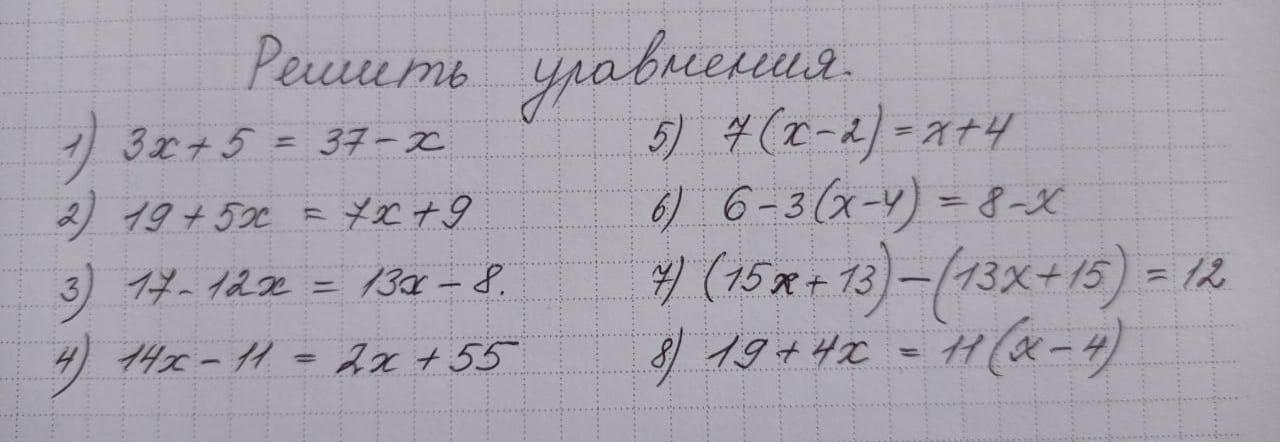 Решить уравнения.
1) 3x + 5 = 37 - x
2) 19 + 5x = 7x + 9
3) 17 - 12x = 13x - 8.
4) 14x - 11 = 2x + 55
5) 7(x - 2) = x + 4
6) 6 - 3(x - 4) = 8 - x
7) (15x + 13) - (13x + 15) = 12
8) 19 + 4x = 11(x - 4)